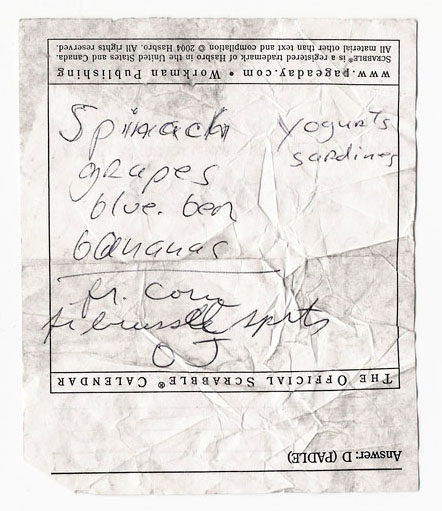 Spinach
grapes
blue. ber
bananas
fr. corn
fr brussel sprts
OJ
Yogurts
sardines
Answer: D (PADLE)
THE OFFICIAL SCRABBLE® CALENDAR
www.pageaday.com • Workman Publishing
SCRABBLE® is a registered trademark of Hasbro in the United States and Canada.
All material other than text and compilation © 2004 Hasbro. All rights reserved.